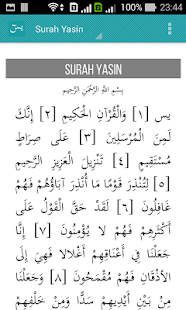 23:44
يس Surah Yasin
SURAH YASIN
بِسْمِ اللَّهِ الرَّحْمَٰنِ الرَّحِيمِ
يس [١] وَالْقُرْآنِ الْحَكِيمِ [٢] إِنَّكَ
لَمِنَ الْمُرْسَلِينَ [٣] عَلَىٰ صِرَاطٍ
مُسْتَقِيمٍ [٤] تَنْزِيلَ الْعَزِيزِ الرَّحِيمِ
[٥] لِتُنْذِرَ قَوْمًا مَا أُنْذِرَ آبَاؤُهُمْ فَهُمْ
غَافِلُونَ [٦] لَقَدْ حَقَّ الْقَوْلُ عَلَىٰ
أَكْثَرِهِمْ فَهُمْ لَا يُؤْمِنُونَ [٧] إِنَّا
جَعَلْنَا فِي أَعْنَاقِهِمْ أَغْلَالًا فَهِيَ إِلَى
الْأَذْقَانِ فَهُمْ مُقْمَحُونَ [٨] وَجَعَلْنَا
مِنْ بَيْنِ أَيْدِيهِمْ سَدًّا وَمِنْ خَلْفِهِمْ